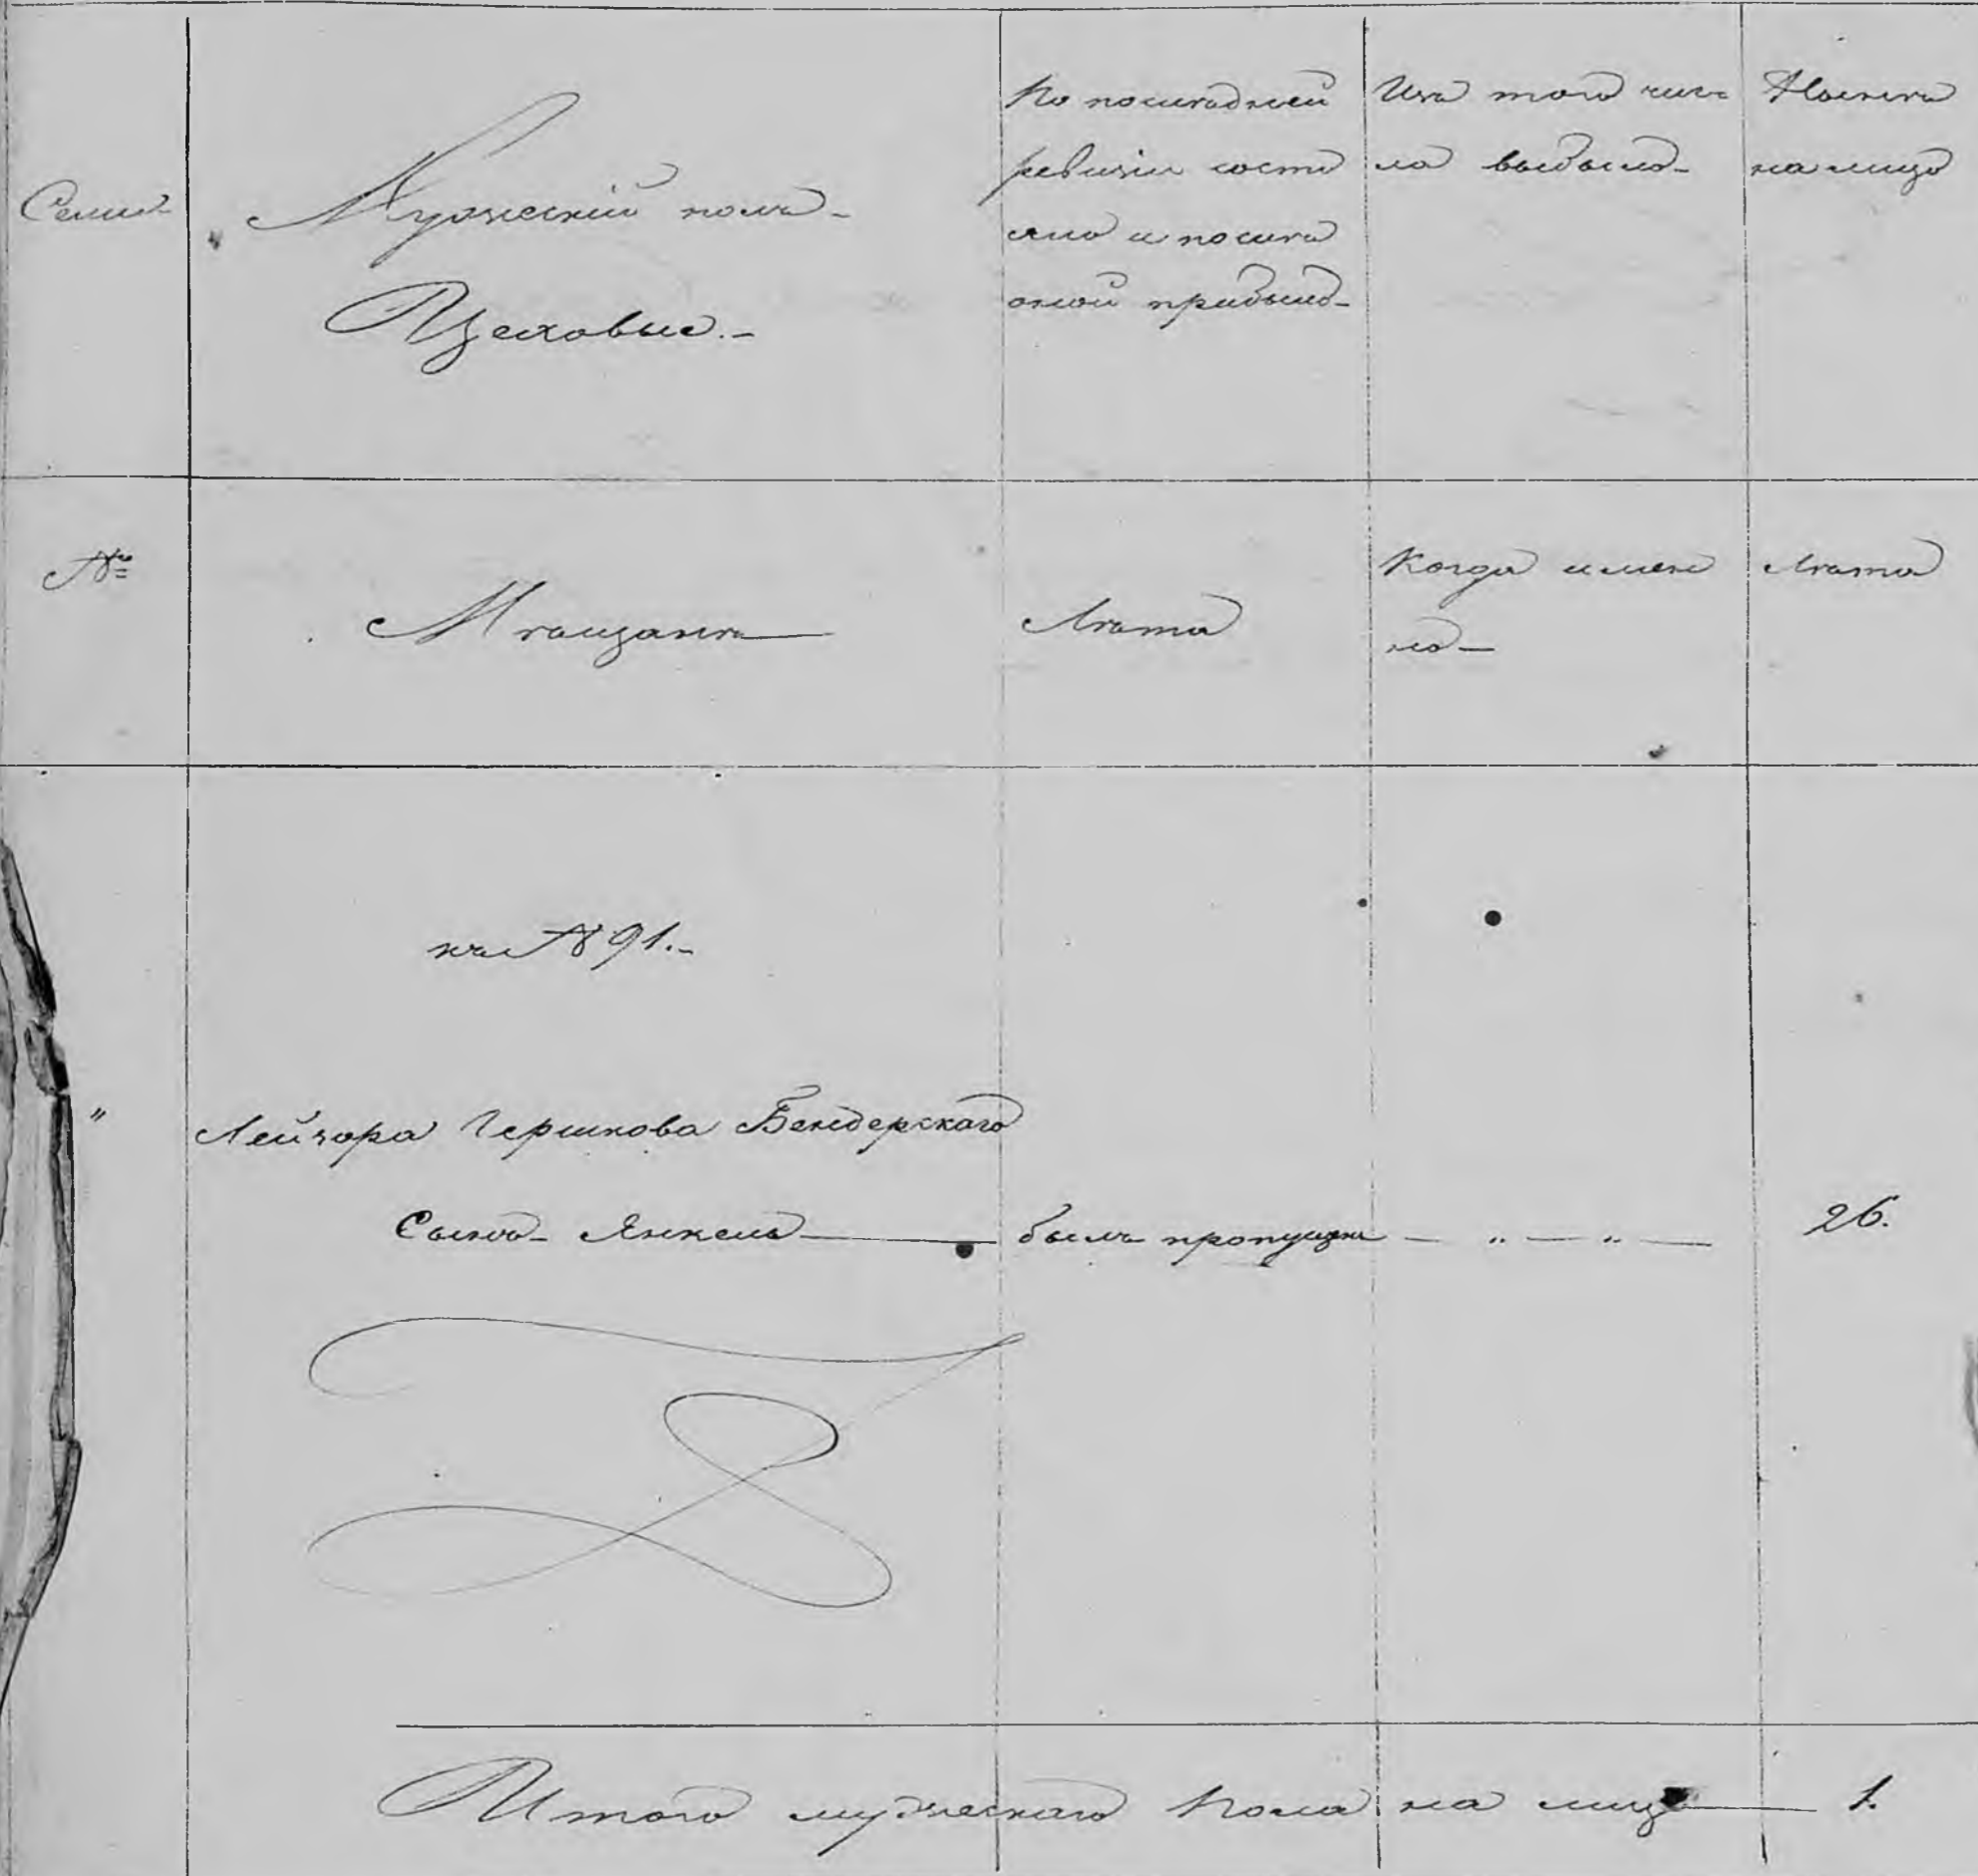 Семьи
Мужескій полъ
Цеховые.
По послѣдней
ревизіи состо
яло и послѣ
оной прибыло
Изъ того чис
ла выбыло
Нынѣ
на лицо
№
Мѣщанъ
Лѣта
Когда имен
но
Лѣта
къ № 91.
" Лейзора Гершкова Бендерскаго
Сынъ Янкель былъ пропущенъ — " — " — 26.
Итого мужескаго пола на лицо 1.